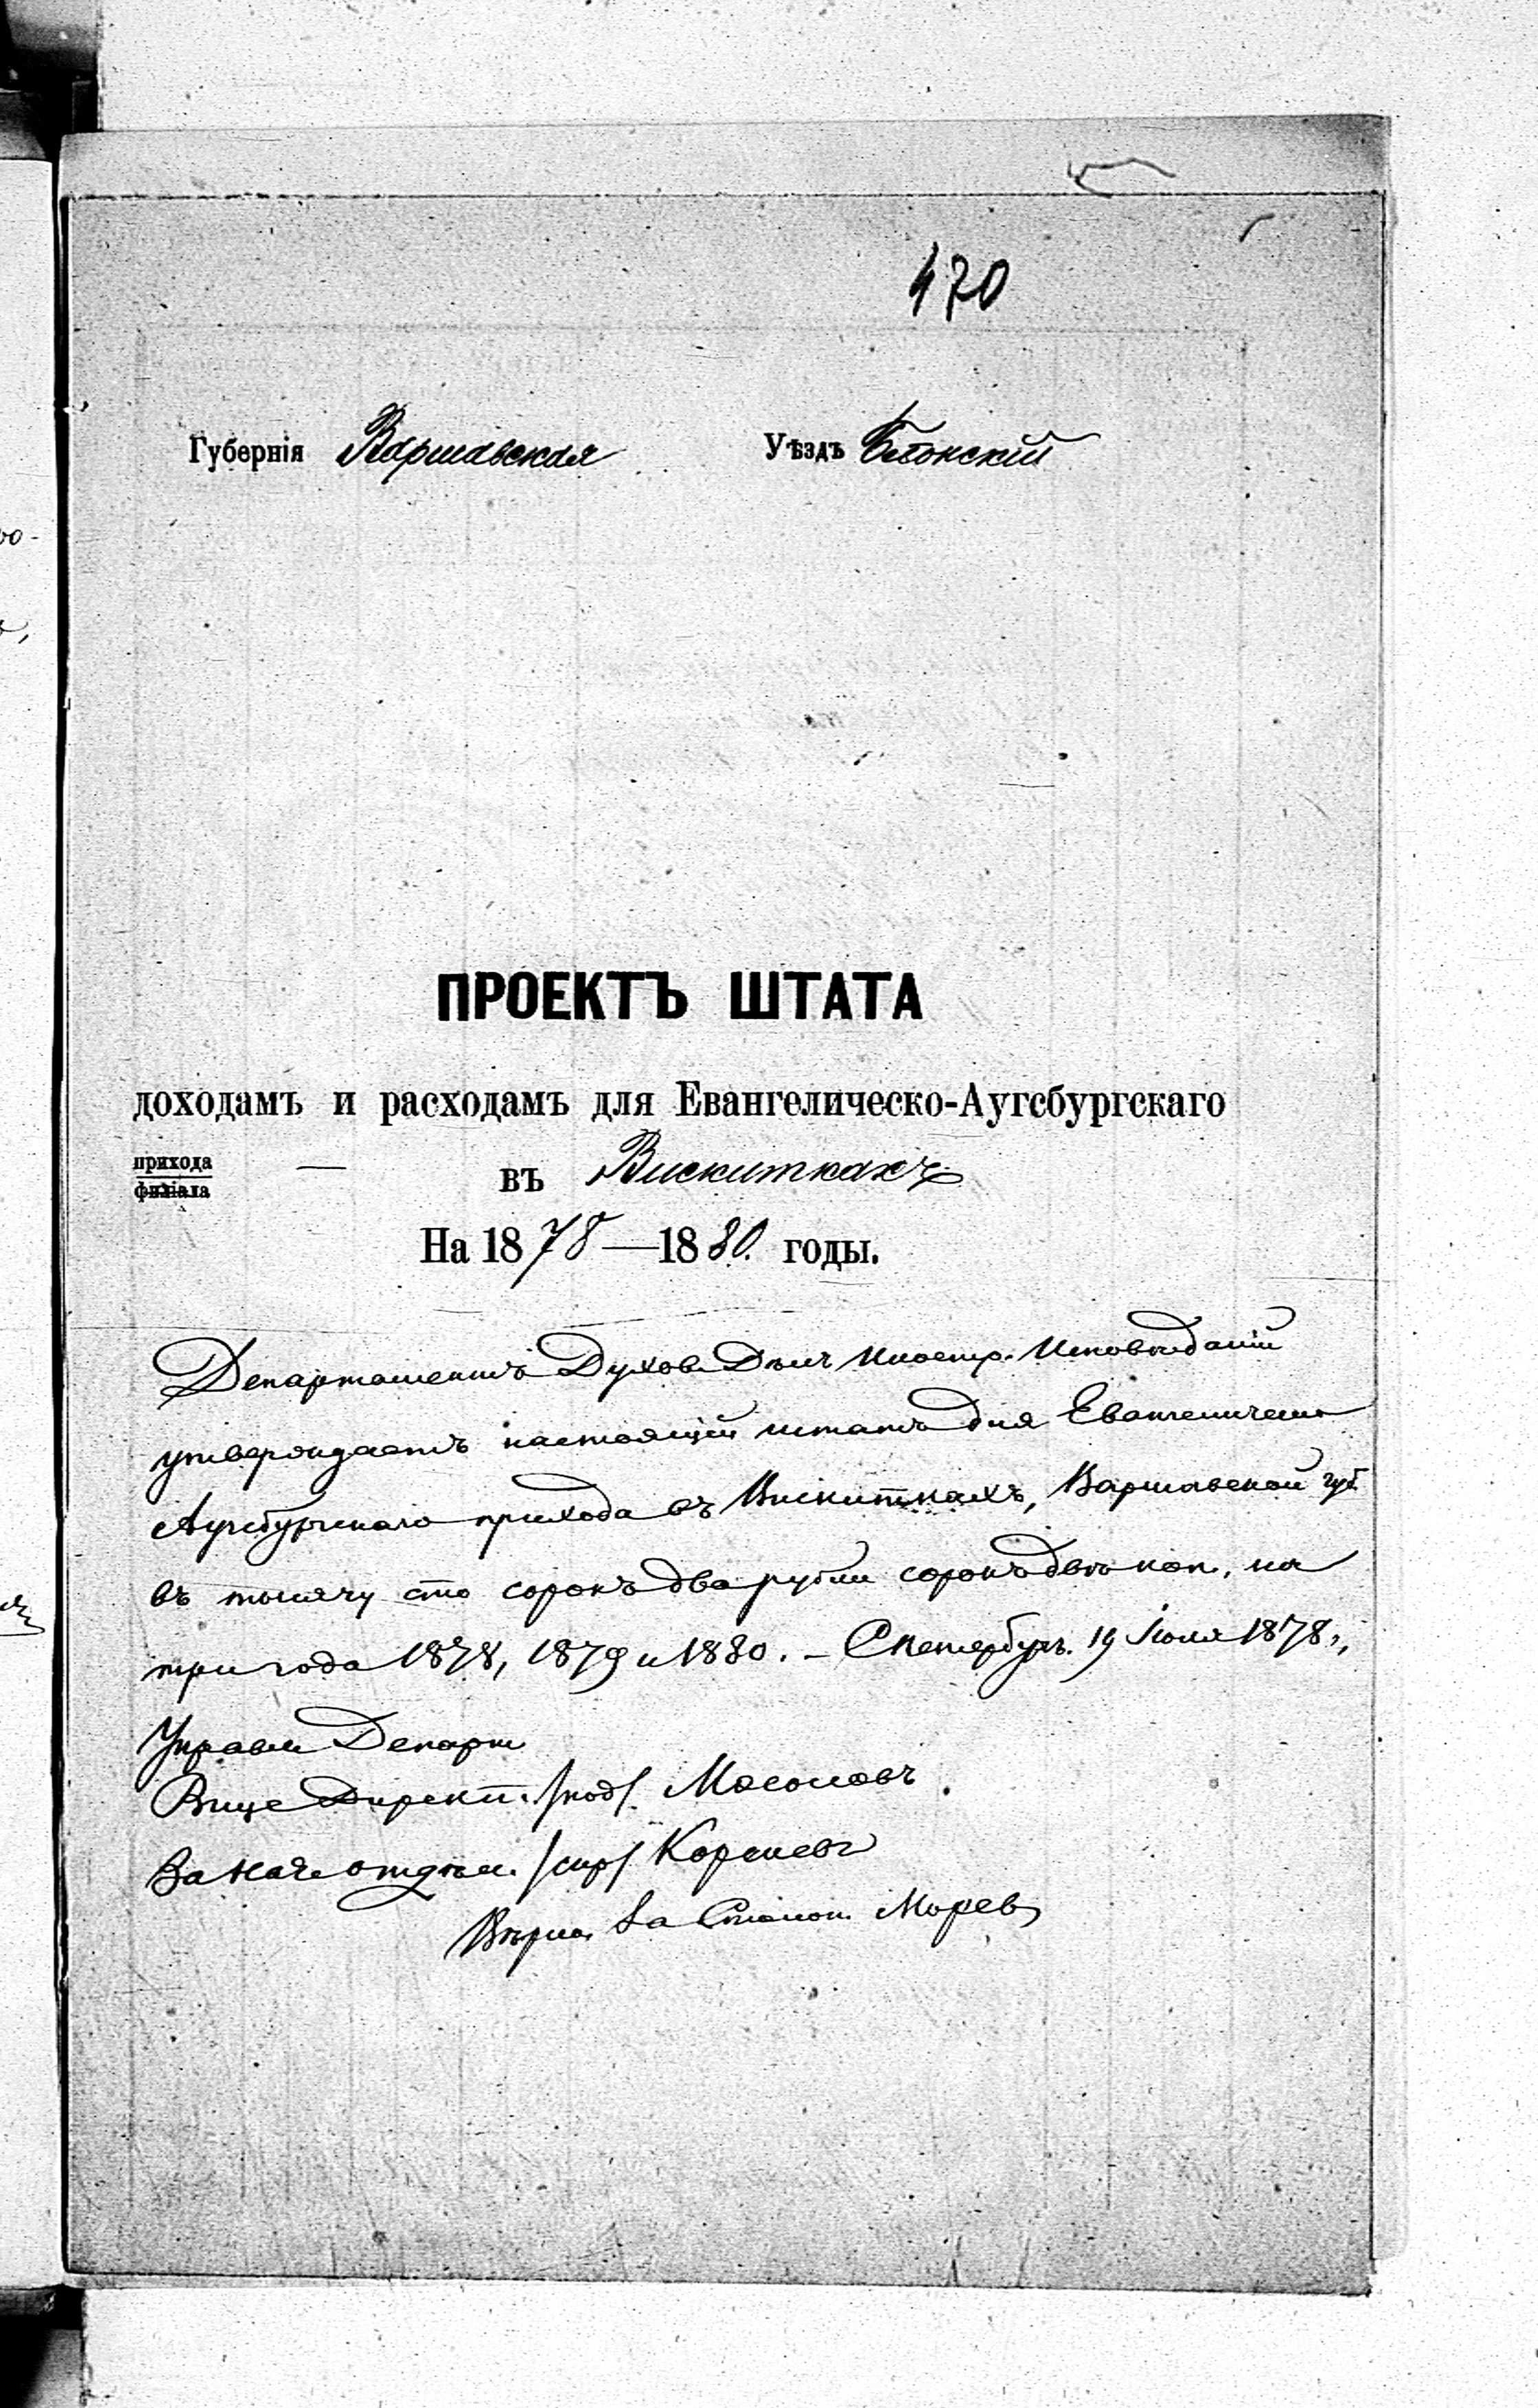 470
Губернія Варшавская Уѣздъ Блонскій
ПРОЕКТЪ ШТАТА
доходамъ и расходамъ для Евангелическо-Аугсбургскаго
прихода
филіала
— въ Вискиткахъ
На 1878—1880. годы.
Департаментъ Духов. Дѣлъ Иностр. Исповѣданій
утверждаетъ настоящій штатъ для Евангелическо
Аугсбургскаго прихода въ Вискиткахъ, Варшавской губ.
въ тысячу сто сорокъ два рубли сорокъ двѣ коп., на
три года 1878, 1879 и 1880. – СПетербургъ. 19 Іюля 1878 г.
Управл. Департ.
Вице Директ. /под/. Мосоловъ
За Нач. отдѣл. /скр/
Вѣрно. За Столон.